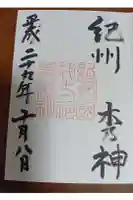 紀州 木乃神
平成二十九年十月八日